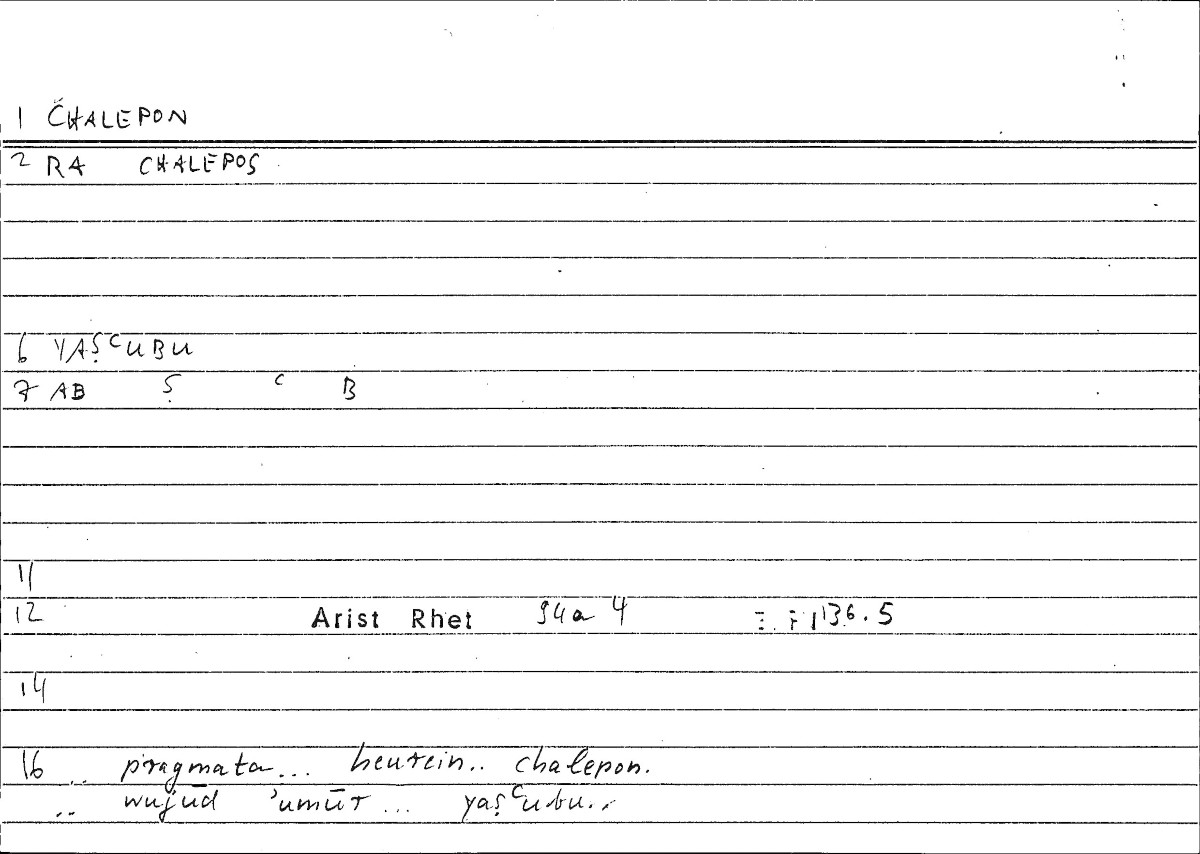 1 CHALEPON
2 RA CHALEPOS
6 YAṢᶜUBU
7 AB Ṣ ᶜ B
11
12 Arist Rhet 94a 4 136.5
14
16 .. pragmata... heurein.. chalepon.
.. wujūd ʾumūr... yaṣᶜubu..